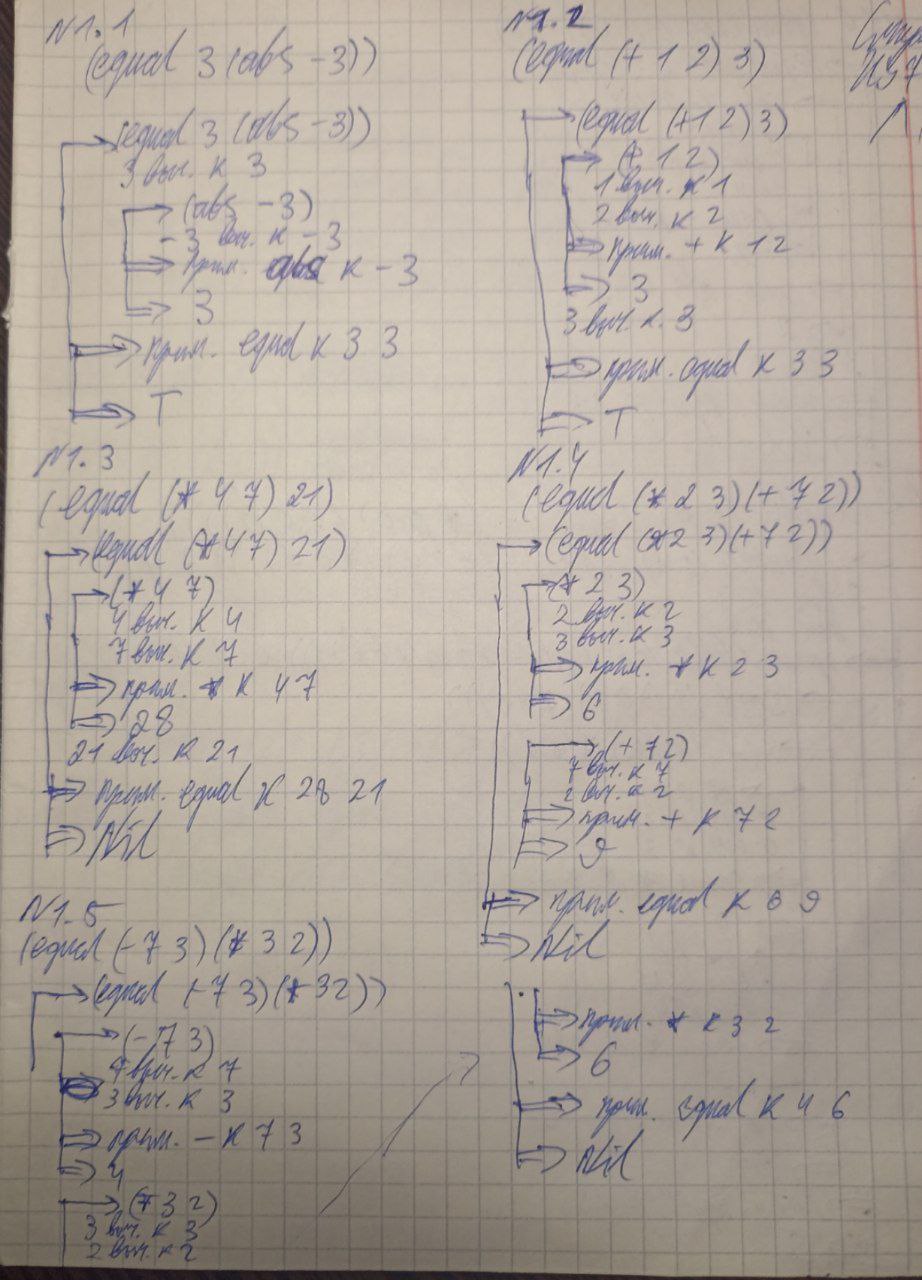 N1.1
(equal 3 (abs -3))
(equal 3 (abs -3))
3 выч. к 3
(abs -3)
-3 выч. к -3
прим. abs к -3
3
прим. equal к 3 3
T
N1.2
(equal (+ 1 2) 3)
(equal (+1 2) 3)
(+ 1 2)
1 выч. к 1
2 выч. к 2
прим. + к 1 2
3
3 выч. к. 3
прим. equal к 3 3
T
N1.3
(equal (* 4 7) 21)
(equal (* 4 7) 21)
(* 4 7)
4 выч. к 4
7 выч. к 7
прим. * к 4 7
28
21 выч. к 21
прим. equal к 28 21
Nil
N1.4
(equal (* 2 3) (+ 7 2))
(equal (* 2 3) (+ 7 2))
(* 2 3)
2 выч. к 2
3 выч. к 3
прим. * к 2 3
6
(+ 7 2)
7 выч. к 7
2 выч. к 2
прим. + к 7 2
9
прим. equal к 6 9
Nil
N1.5
(equal (- 7 3) (* 3 2))
(equal (- 7 3) (* 3 2))
(- 7 3)
7 выч. к 7
3 выч. к 3
прим. - к 7 3
4
(* 3 2)
3 выч. к 3
2 выч. к 2
прим. * к 3 2
6
прим. equal к 4 6
Nil